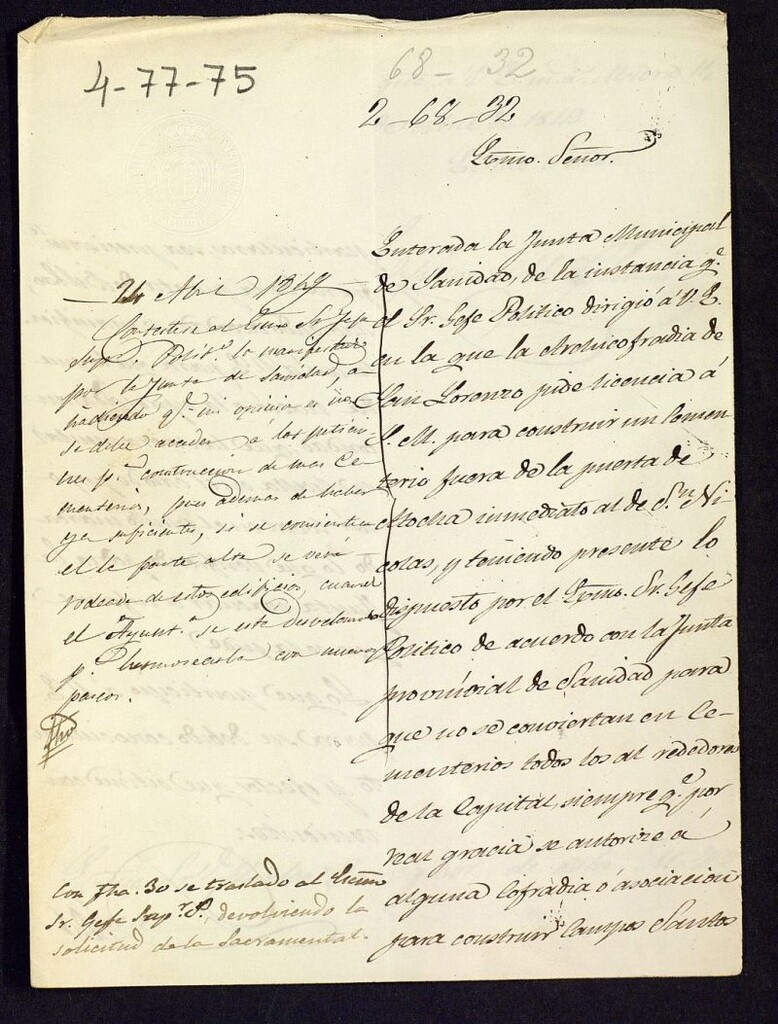 4-77-75
68-32
2-68-32
Exmo. Señor.
Enterada la Junta Municipal
de Sanidad, de la instancia q.e
el Sr. Gefe Politico dirigió á V. E.
en la que la Archicofradia de
San Lorenzo pide licencia á
S. M. para construir un Cemen
terio fuera de la puerta de
Atocha inmediato al de S.n Ni
colas, y teniendo presente lo
dispuesto por el Exmo. Sr. Gefe
Politico de acuerdo con la Junta
provincial de Sanidad para
que no se conviertan en Ce-
menterios todos los al rededores
de la Capital, siempre q.e por
real gracia se autorize á
alguna Cofradia ó asociacion
para construir Campos Santos
24 Abril 1849
Contestese al Exmo Sr. Gefe
Sup.r Polit.o lo manifestado
por la Junta de Sanidad, a-
ñadiendo q.e mi opinion es no
se debe acceder á las peticio-
nes p.a construccion de mas Ce-
menterios, pues ademas de haber
ya suficientes, si se consienten
el la parte alta se verá
rodeada de estos edificios, cuando
el Ayunt.o se está desvelando
p.r hermosearla con nuevos
paseos.
Con fha. 30 se traslado al Exmo
Sr. Gefe Sup.r P., devolviendo la
solicitud de la Sacramental.